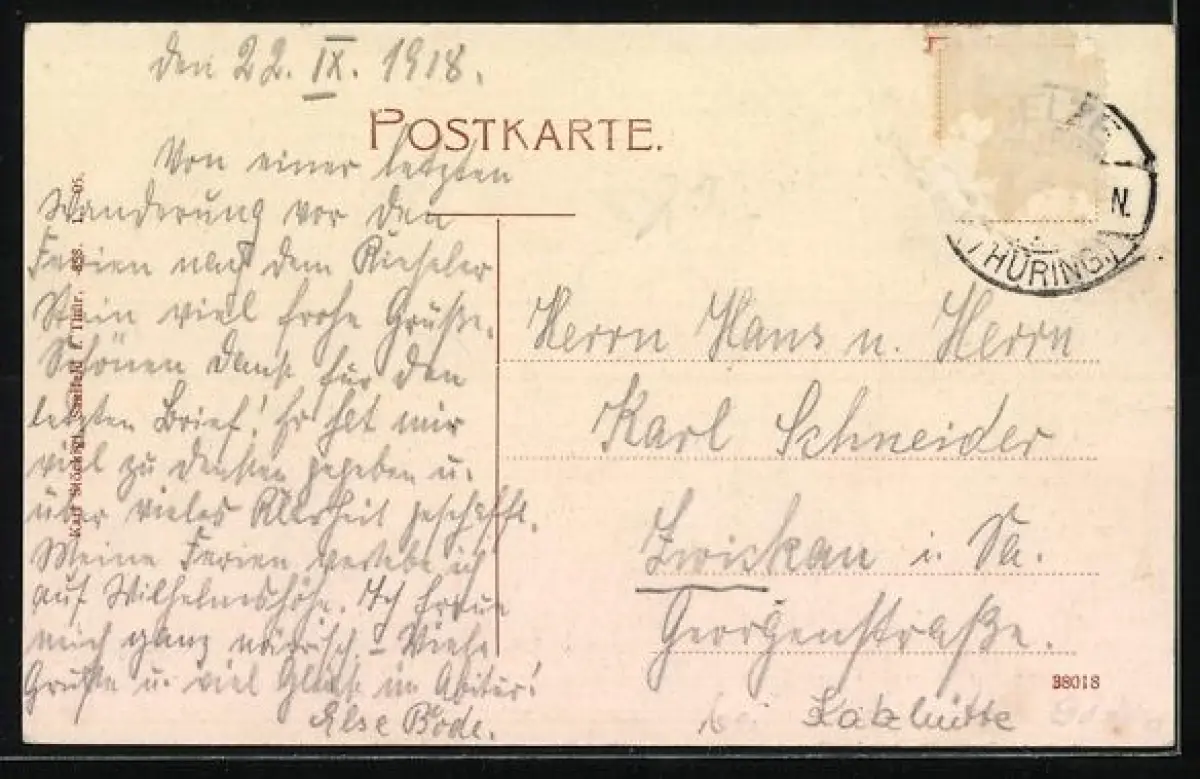 den 22. IX. 1918.
POSTKARTE.
Von einer letzten
Wanderung vor den
Ferien nach dem Kieseler
Stein viel frohe Grüße.
Schönen Dank für den
letzten Brief! Er hat mir
viel zu denken gegeben u.
über vieles Klarheit geschafft.
Meine Ferien verlebe ich
auf Wilhelmshöhe. Ich freue
mich ganz närrisch. Viele
Grüße u. viel Glück im Abitur!
Else Bode.
Karl Stöckigt, Saalfeld i. Thür. 05.
N.
(THÜRING.)
Herrn Hans u. Herrn
Karl Schneider
Zwickau i. Sa.
Georgenstraße.
38018
Katzhütte